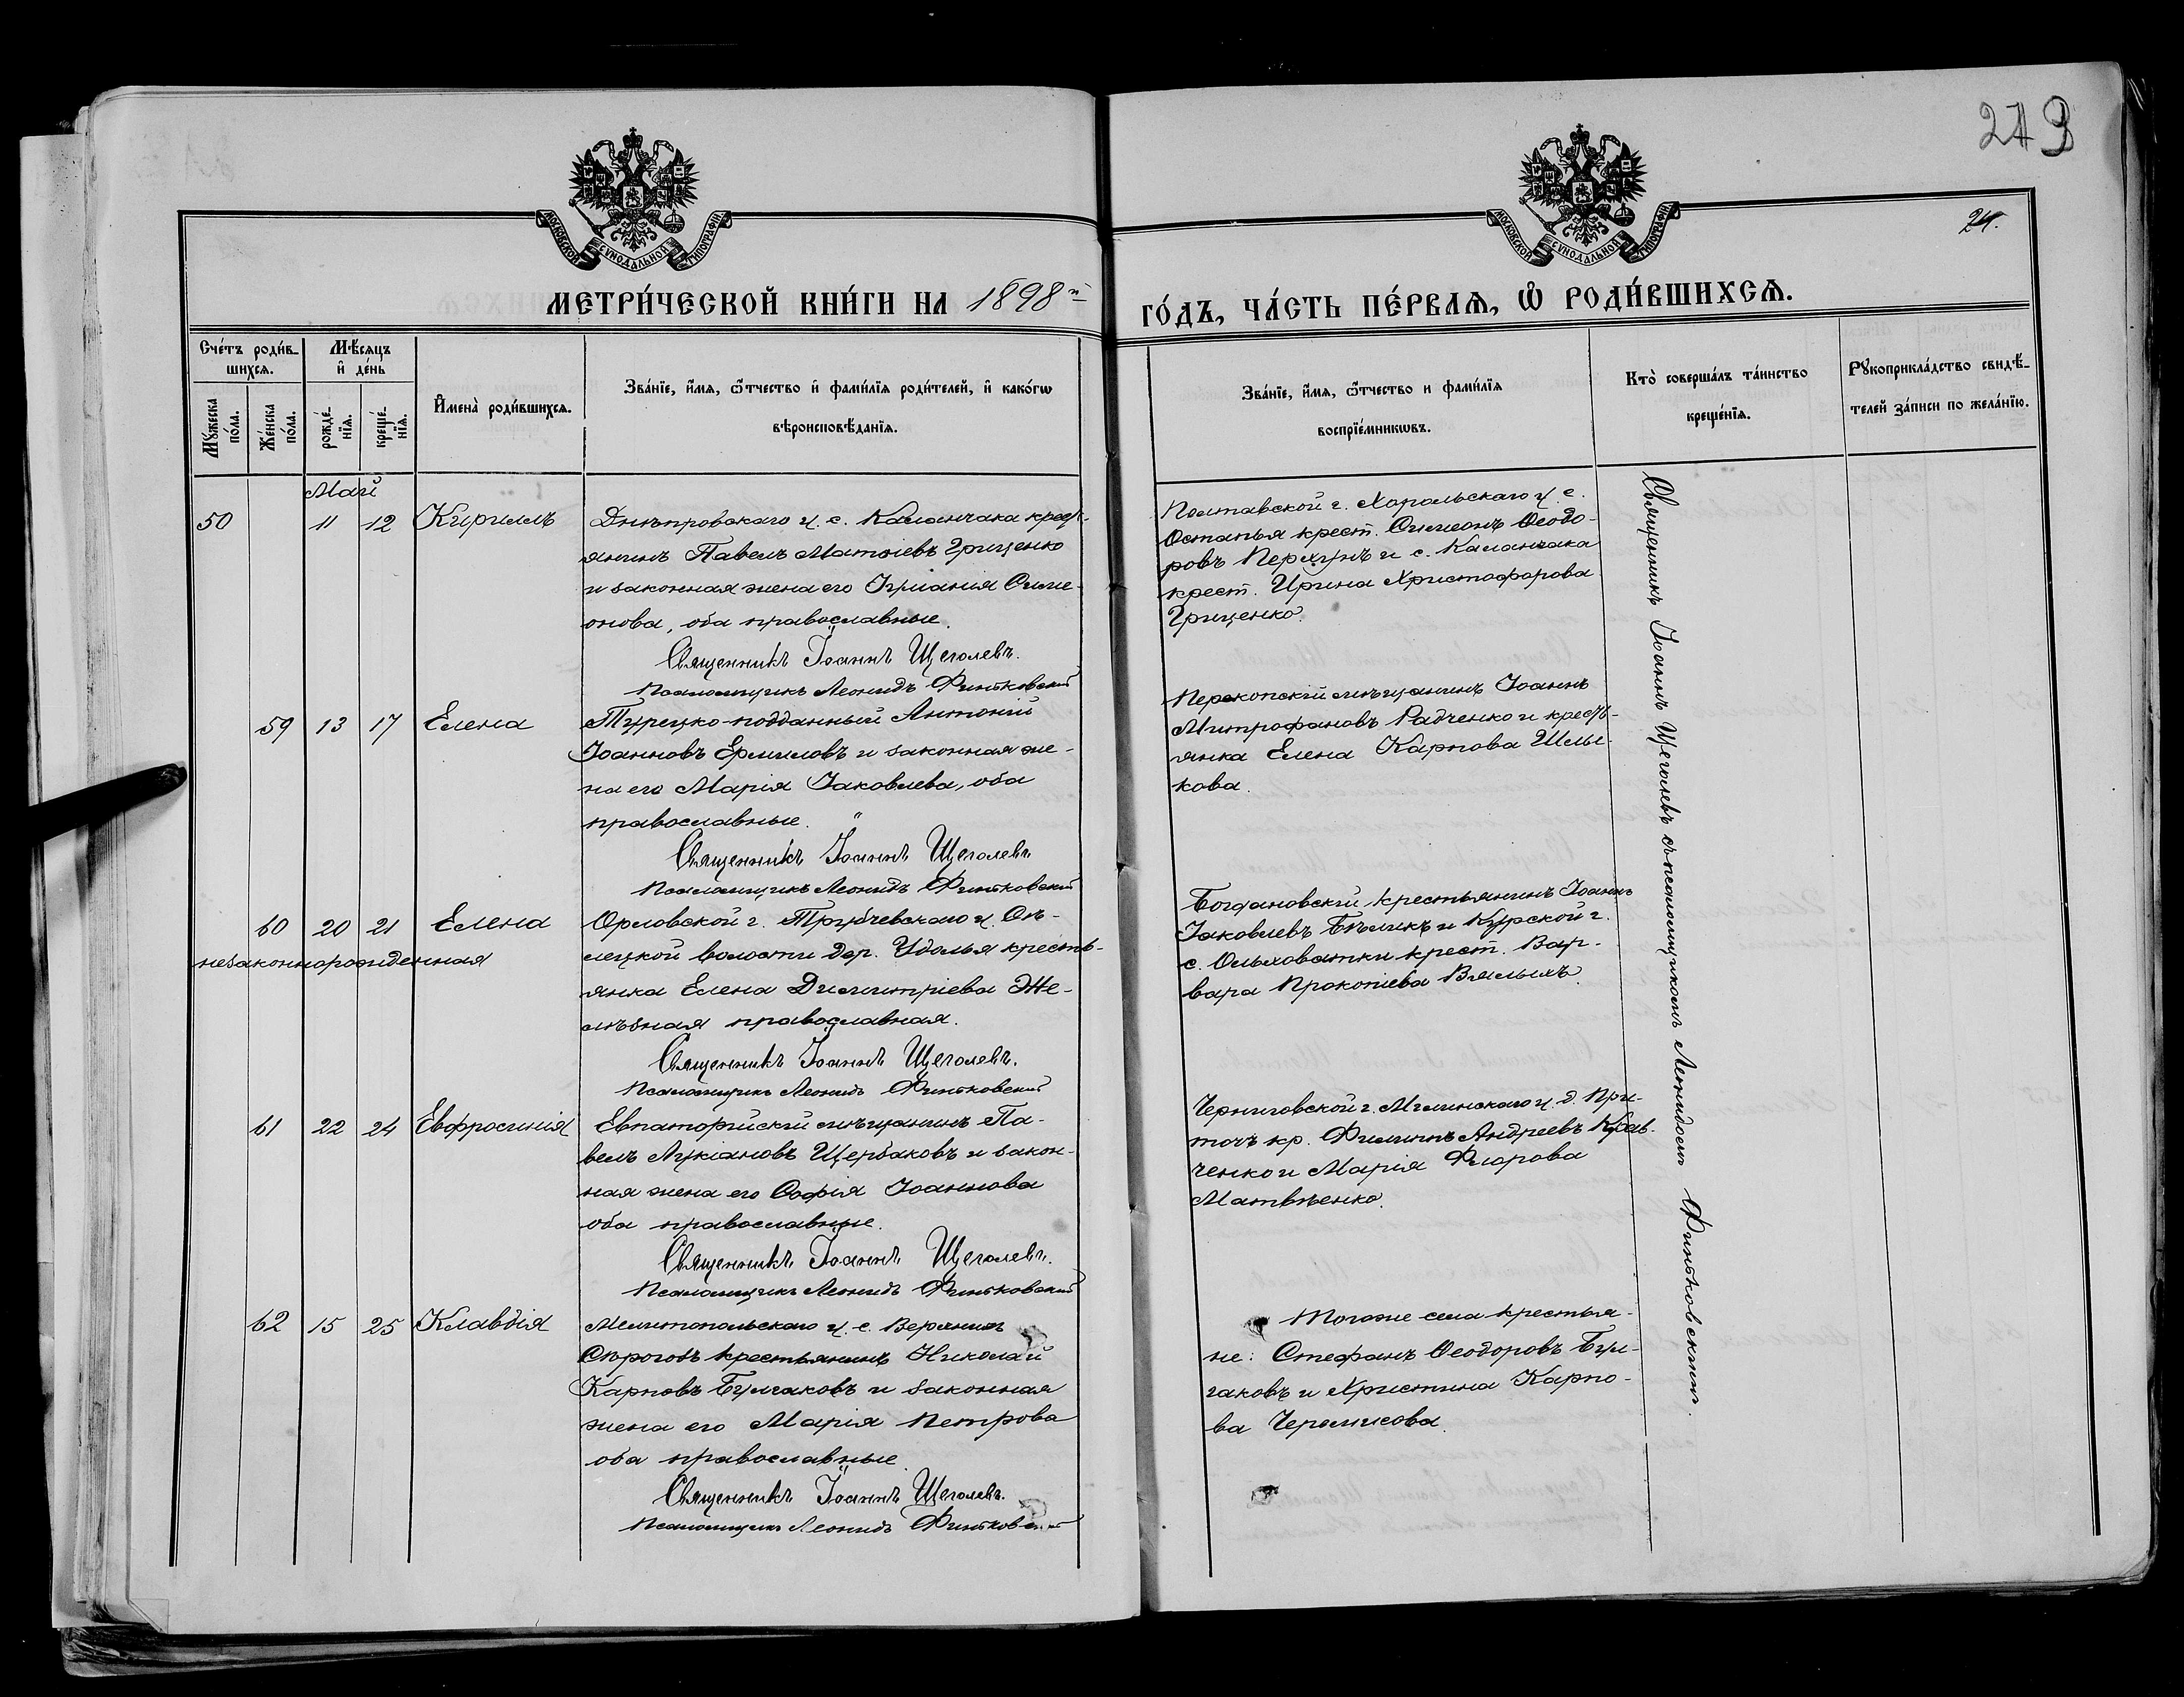 243
24.
МОСКОВСКОЙ СѴНОДАЛЬНОЙ ТИПОГРАФІИ
МОСКОВСКОЙ СѴНОДАЛЬНОЙ ТИПОГРАФІИ
МЕТРИ́ЧЕСКОЙ КНИ́ГИ НА 1898й
ГО́ДЪ, ЧА́СТЬ ПЕ́РВАѦ, Ѽ РОДИ́ВШИХСѦ.
Сче́тъ роди́в-
шихсѧ.
Мꙋ́жеска по́ла.
Же́нска по́ла.
Мѣ́сѧцъ
и҆ де́нь
рожде́-
нїѧ.
креще́-
нїѧ.
И҆мена̀ роди́вшихсѧ.
Зва́нїе, и҆́мѧ, ѻ҆́тчество и҆ фами́лїѧ роди́телей, и҆ како́гѡ
вѣроисповѣ́данїѧ.
Зва́нїе, и҆́мѧ, ѻ҆́тчество и фами́лїѧ
воспрїе́мникѡвъ.
Кто̀ соверша́лъ та́инство
креще́нїѧ.
Рꙋкоприкла́дство свидѣ́-
телей за́писи по жела́нїю.
Май
50 11 12 Кириллъ
Днѣпровскаго у. с. Каланчака крест-
янинъ Павелъ Матѳіевъ Гриценко
и законная жена его Іуліанія Симе-
онова, оба православные.
Священникъ Іоаннъ Щеголевъ.
Псаломщикъ Леонидъ Финьковскій
Полтавской г. Хорольскаго у. с.
Остапья крест. Симеонъ Ѳеодо-
ровъ Перхунъ и с. Каланчака
крест. Ирина Христофорова
Гриценко.
59 13 17 Елена
Турецко-подданный Антоній
Іоанновъ Ермиловъ и законная же-
на его Марія Іаковлева, оба
православные.
Священникъ Іоаннъ Щеголевъ
Псаломщикъ Леонидъ Финьковскій
Перекопскій мѣщанинъ Іоаннъ
Митрофановъ Радченко и кресть-
янка Елена Карпова Шлы-
кова.
60 20 21 Елена
незаконнорожденная
Орловской г. Трубчевскаго у. Сѣ-
лецкой волости дер. Удолья кресть-
янка Елена Димитріева Же-
лѣзная православная.
Священникъ Іоаннъ Щеголевъ.
Псаломщикъ Леонидъ Финьковскій
Богдановскій крестьянинъ Іоаннъ
Іаковлевъ Бѣликъ и Курской г.
с. Ольховатки крест. Вар-
вара Прокопіева Вялыхъ.
61 22 24 Евфросинія
Евпаторійскій мѣщанинъ Па-
велъ Лукіановъ Щербаковъ и закон-
ная жена его Софія Іоаннова
оба православные.
Священникъ Іоаннъ Щеголевъ.
Псаломщикъ Леонидъ Финьковскій
Черниговской г. Мглинскаго у. д. При-
точъ кр. Филиппъ Андреевъ Крав-
ченко и Марія Флорова
Матвѣенко.
62 15 25 Клавдія
Мелитопольскаго у. с. Верхнихъ
Сѣрогозъ крестьянинъ Николай
Карповъ Булгаковъ и законная
жена его Марія Петрова
оба православные.
Священникъ Іоаннъ Щеголевъ.
Псаломщикъ Леонидъ Финьковскій
Тогоже села крестья-
не: Стефанъ Ѳеодоровъ Бул-
гаковъ и Христина Карпо-
ва Черемисова.
Священникъ Іоаннъ Щеголевъ съ псаломщикомъ Леонидомъ Финьковскимъ.